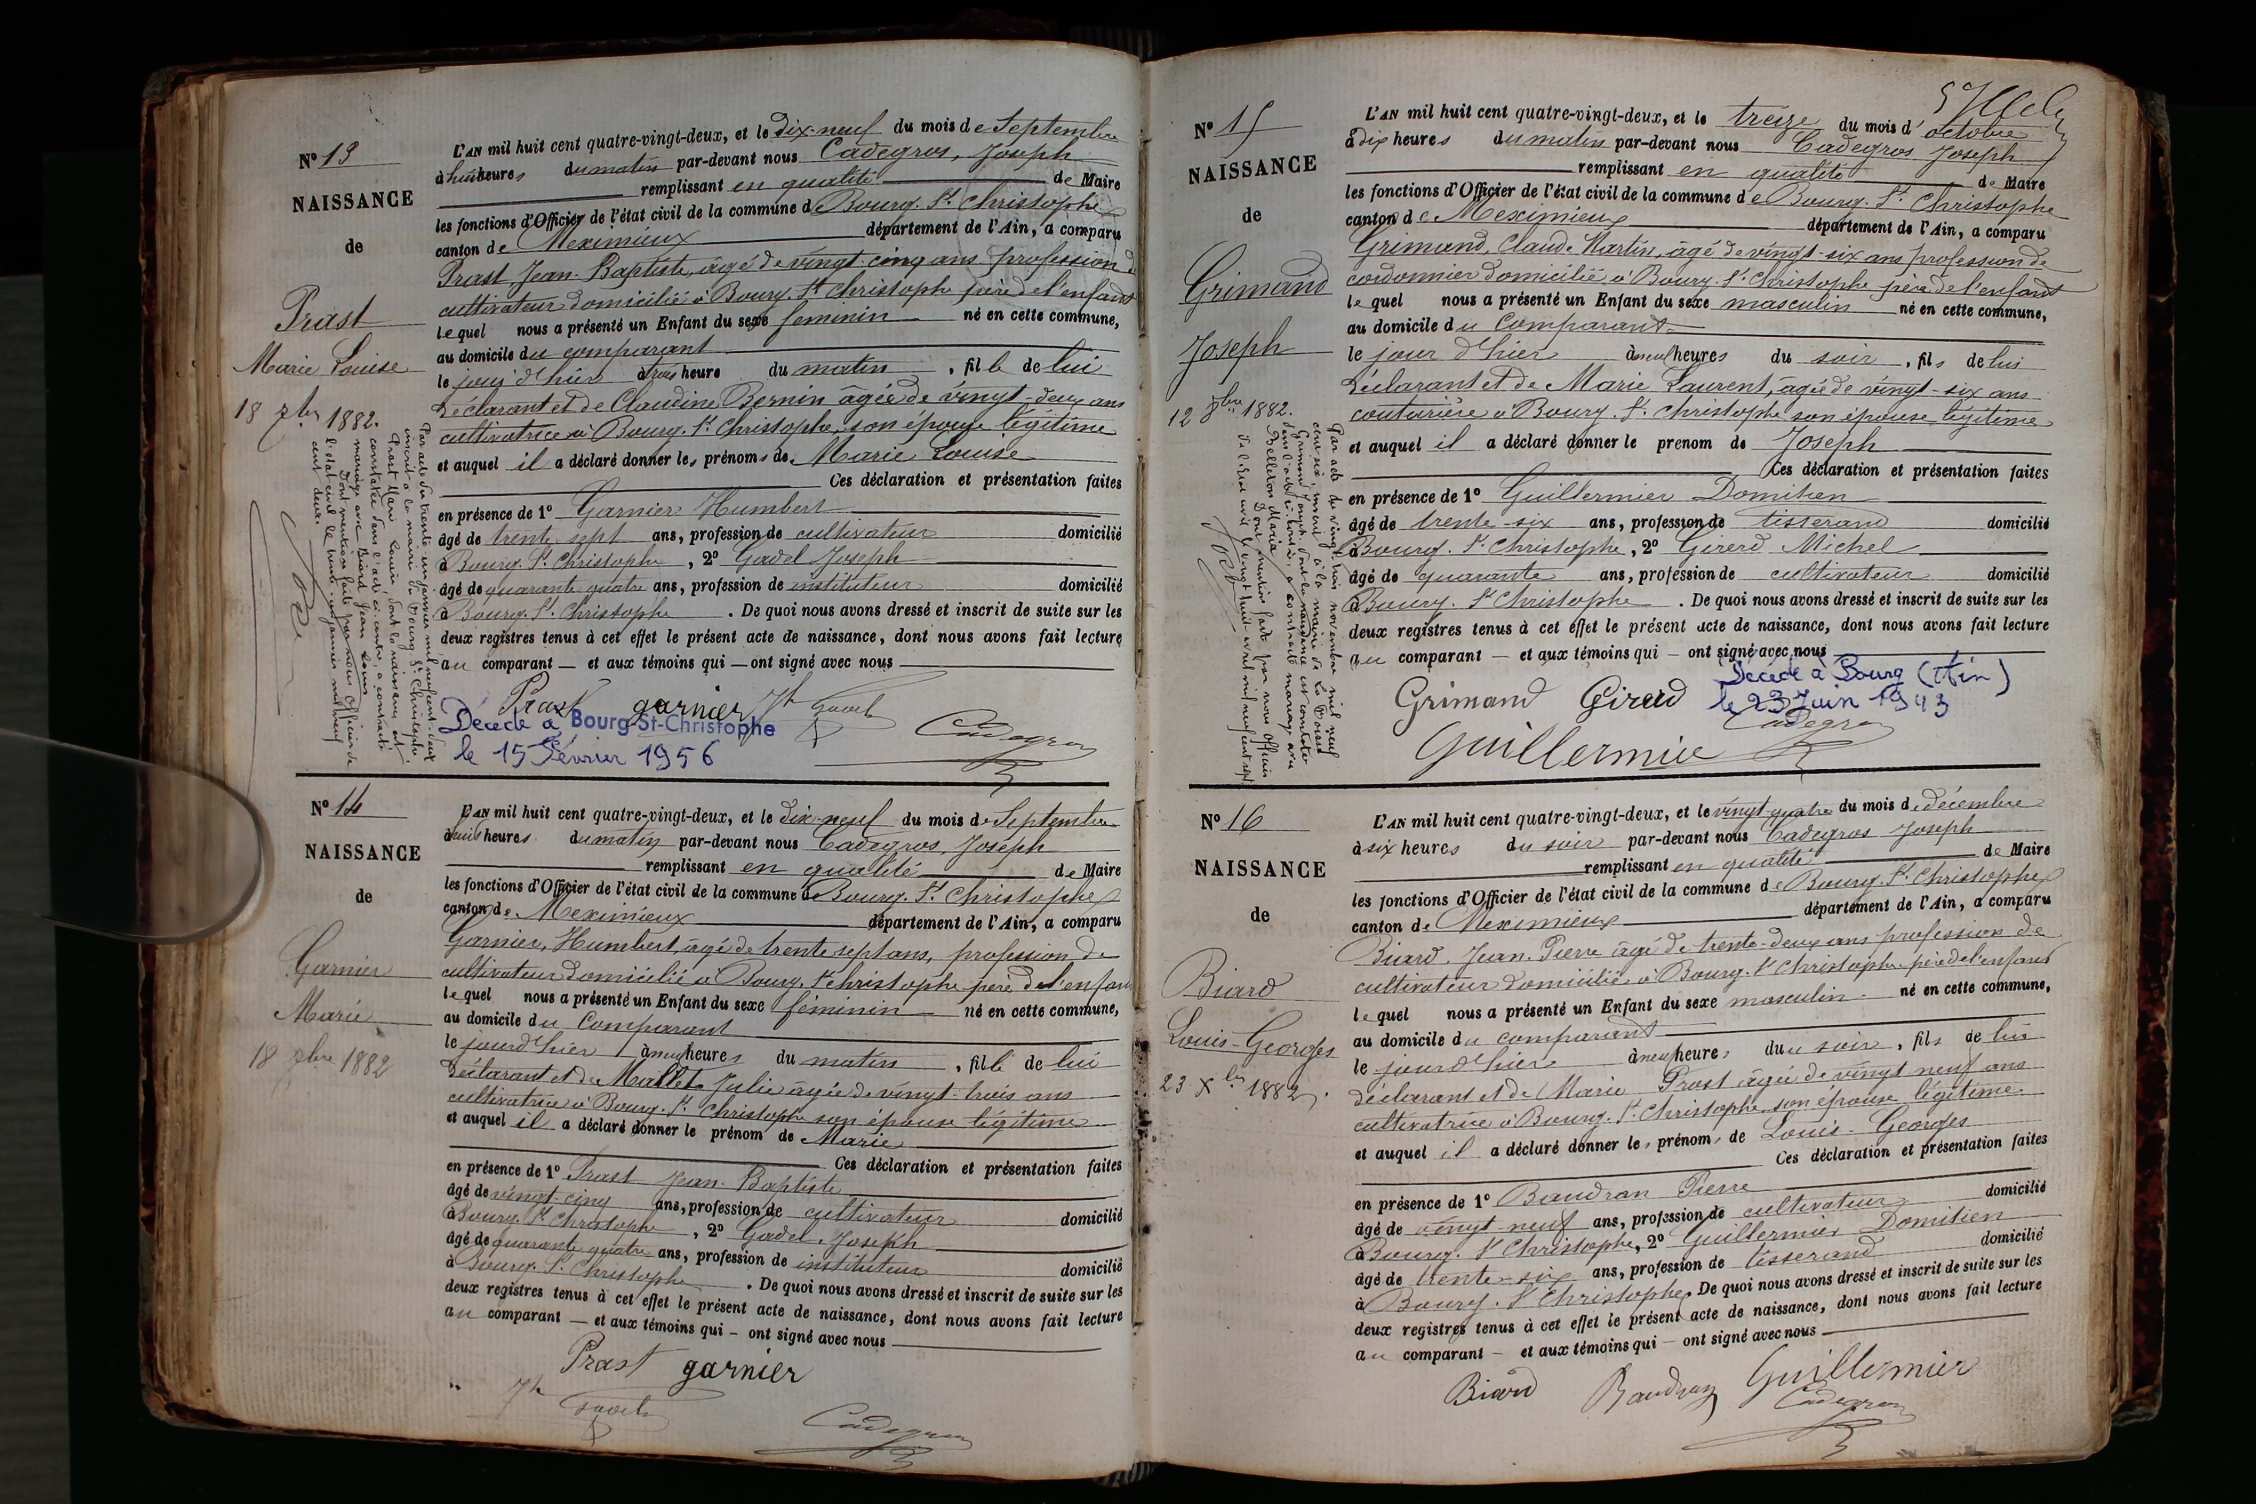 Nº 13
NAISSANCE
de
Prast
Marie Louise
18 7bre 1882.
L'AN mil huit cent quatre-vingt-deux, et le dix-neuf du mois de Septembre
à huit heures du matin par-devant nous Cadegros, Joseph
remplissant en qualité de Maire
les fonctions d'Officier de l'état civil de la commune de Bourg. St. Christophe
canton de Meximieux département de l'Ain, a comparu
Prast Jean-Baptiste, âgé de vingt-cinq ans profession de
cultivateur domicilié à Bourg. St Christophe père de l'enfant
lequel nous a présenté un Enfant du sexe feminin né en cette commune,
au domicile du comparant
le jour d'hier à trois heure du matin, fille de lui
déclarant et de Claudine Bernin âgée de vingt-deux ans
cultivatrice à Bourg. St. Christophe, son épouse légitime
et auquel il a déclaré donner les prénoms de Marie Louise
Ces déclaration et présentation faites
en présence de 1º Garnier Humbert
âgé de trente sept ans, profession de cultivateur domicilié
à Bourg. St Christophe, 2º Gadel Joseph
âgé de quarante quatre ans, profession de instituteur domicilié
à Bourg. St. Christophe. De quoi nous avons dressé et inscrit de suite sur les
deux registres tenus à cet effet le présent acte de naissance, dont nous avons fait lecture
au comparant — et aux témoins qui — ont signé avec nous
Prast garnier Jh Gadel
Cadegros
Décédé à Bourg-St-Christophe
le 15 Février 1956
Par acte du trente un janvier mil neuf cent deux
inscrit à la mairie de Bourg St Christophe,
Prast Marie Louise, dont la naissance est
constatée dans l'acte ci-contre, a contracté
mariage avec Biard Jean Louis
Dont mention faite par nous Officier de
l'état civil le trente-un janvier mil neuf
cent deux.
Nº 14
NAISSANCE
de
Garnier
Marie
18 7bre 1882
L'AN mil huit cent quatre-vingt-deux, et le dix-neuf du mois de Septembre
à huit heures du matin par-devant nous Cadegros, Joseph
remplissant en qualité de Maire
les fonctions d'Officier de l'état civil de la commune de Bourg. St. Christophe
canton de Meximieux département de l'Ain, a comparu
Garnier, Humbert âgé de trente sept ans, profession de
cultivateur domicilié à Bourg. St Christophe père de l'enfant
lequel nous a présenté un Enfant du sexe féminin né en cette commune,
au domicile du comparant
le jour d'hier à neuf heures du matin, fille de lui
déclarant et de Mallet Julie âgée de vingt-trois ans
cultivatrice à Bourg. St. Christophe son épouse légitime
et auquel il a déclaré donner le prénom de Marie
Ces déclaration et présentation faites
en présence de 1º Prast Jean-Baptiste
âgé de vingt-cinq ans, profession de cultivateur domicilié
à Bourg. St Christophe, 2º Gadel, Joseph
âgé de quarante quatre ans, profession de instituteur domicilié
à Bourg. St. Christophe. De quoi nous avons dressé et inscrit de suite sur les
deux registres tenus à cet effet le présent acte de naissance, dont nous avons fait lecture
au comparant — et aux témoins qui — ont signé avec nous
Prast garnier
Jh Gadel
Cadegros
Nº 15
NAISSANCE
de
Grimand
Joseph
12 8bre 1882.
L'AN mil huit cent quatre-vingt-deux, et le treize du mois d'octobre
à dix heures du matin par-devant nous Cadegros Joseph
remplissant en qualité de Maire
les fonctions d'Officier de l'état civil de la commune de Bourg. St. Christophe
canton de Meximieux département de l'Ain, a comparu
Grimand, Claude Martin, âgé de vingt-six ans profession de
cordonnier domicilié à Bourg. St. Christophe père de l'enfant
lequel nous a présenté un Enfant du sexe masculin né en cette commune,
au domicile du comparant
le jour d'hier à neuf heures du soir, fils de lui
déclarant et de Marie Laurent, âgée de vingt-six ans
couturière à Bourg. St. Christophe son épouse légitime
et auquel il a déclaré donner le prenom de Joseph
Ces déclaration et présentation faites
en présence de 1º Guillermier Domitien
âgé de trente-six ans, profession de tisserand domicilié
à Bourg. St. Christophe, 2º Girerd Michel
âgé de quarante ans, profession de cultivateur domicilié
à Bourg. St Christophe. De quoi nous avons dressé et inscrit de suite sur les
deux registres tenus à cet effet le présent acte de naissance, dont nous avons fait lecture
au comparant — et aux témoins qui — ont signé avec nous
Décédé à Bourg (Ain)
le 23 Juin 1943
Grimand Girerd
Cadegros
Guillermier
Par acte du vingt-trois novembre mil neuf
cent six, inscrit à la mairie de La Boisse
Grimand Joseph, dont la naissance est constatée
dans l'acte ci-contre, a contracté mariage avec
Belleton Maria
Dont mention faite par nous Officier
de l'état civil le vingt-huit avril mil neuf cent sept
Nº 16
NAISSANCE
de
Biard
Louis-Georges
23 Xbre 1882.
L'AN mil huit cent quatre-vingt-deux, et le vingt quatre du mois de décembre
à six heures du soir par-devant nous Cadegros Joseph
remplissant en qualité de Maire
les fonctions d'Officier de l'état civil de la commune de Bourg. St. Christophe
canton de Meximieux département de l'Ain, a comparu
Biard, Jean-Pierre âgé de trente-deux ans profession de
cultivateur domicilié à Bourg. St Christophe père de l'enfant
lequel nous a présenté un Enfant du sexe masculin né en cette commune,
au domicile du comparant
le jour d'hier à neuf heures du soir, fils de lui
déclarant et de Marie Prost âgée de vingt neuf ans
cultivatrice à Bourg. St. Christophe son épouse légitime
et auquel il a déclaré donner les prénoms de Louis-Georges
Ces déclaration et présentation faites
en présence de 1º Baudran Pierre
âgé de vingt-neuf ans, profession de cultivateur domicilié
à Bourg. St Christophe, 2º Guillermier Domitien
âgé de trente-six ans, profession de tisserand domicilié
à Bourg. St Christophe. De quoi nous avons dressé et inscrit de suite sur les
deux registres tenus à cet effet le présent acte de naissance, dont nous avons fait lecture
au comparant — et aux témoins qui — ont signé avec nous
Biard Baudran Guillermier
Cadegros